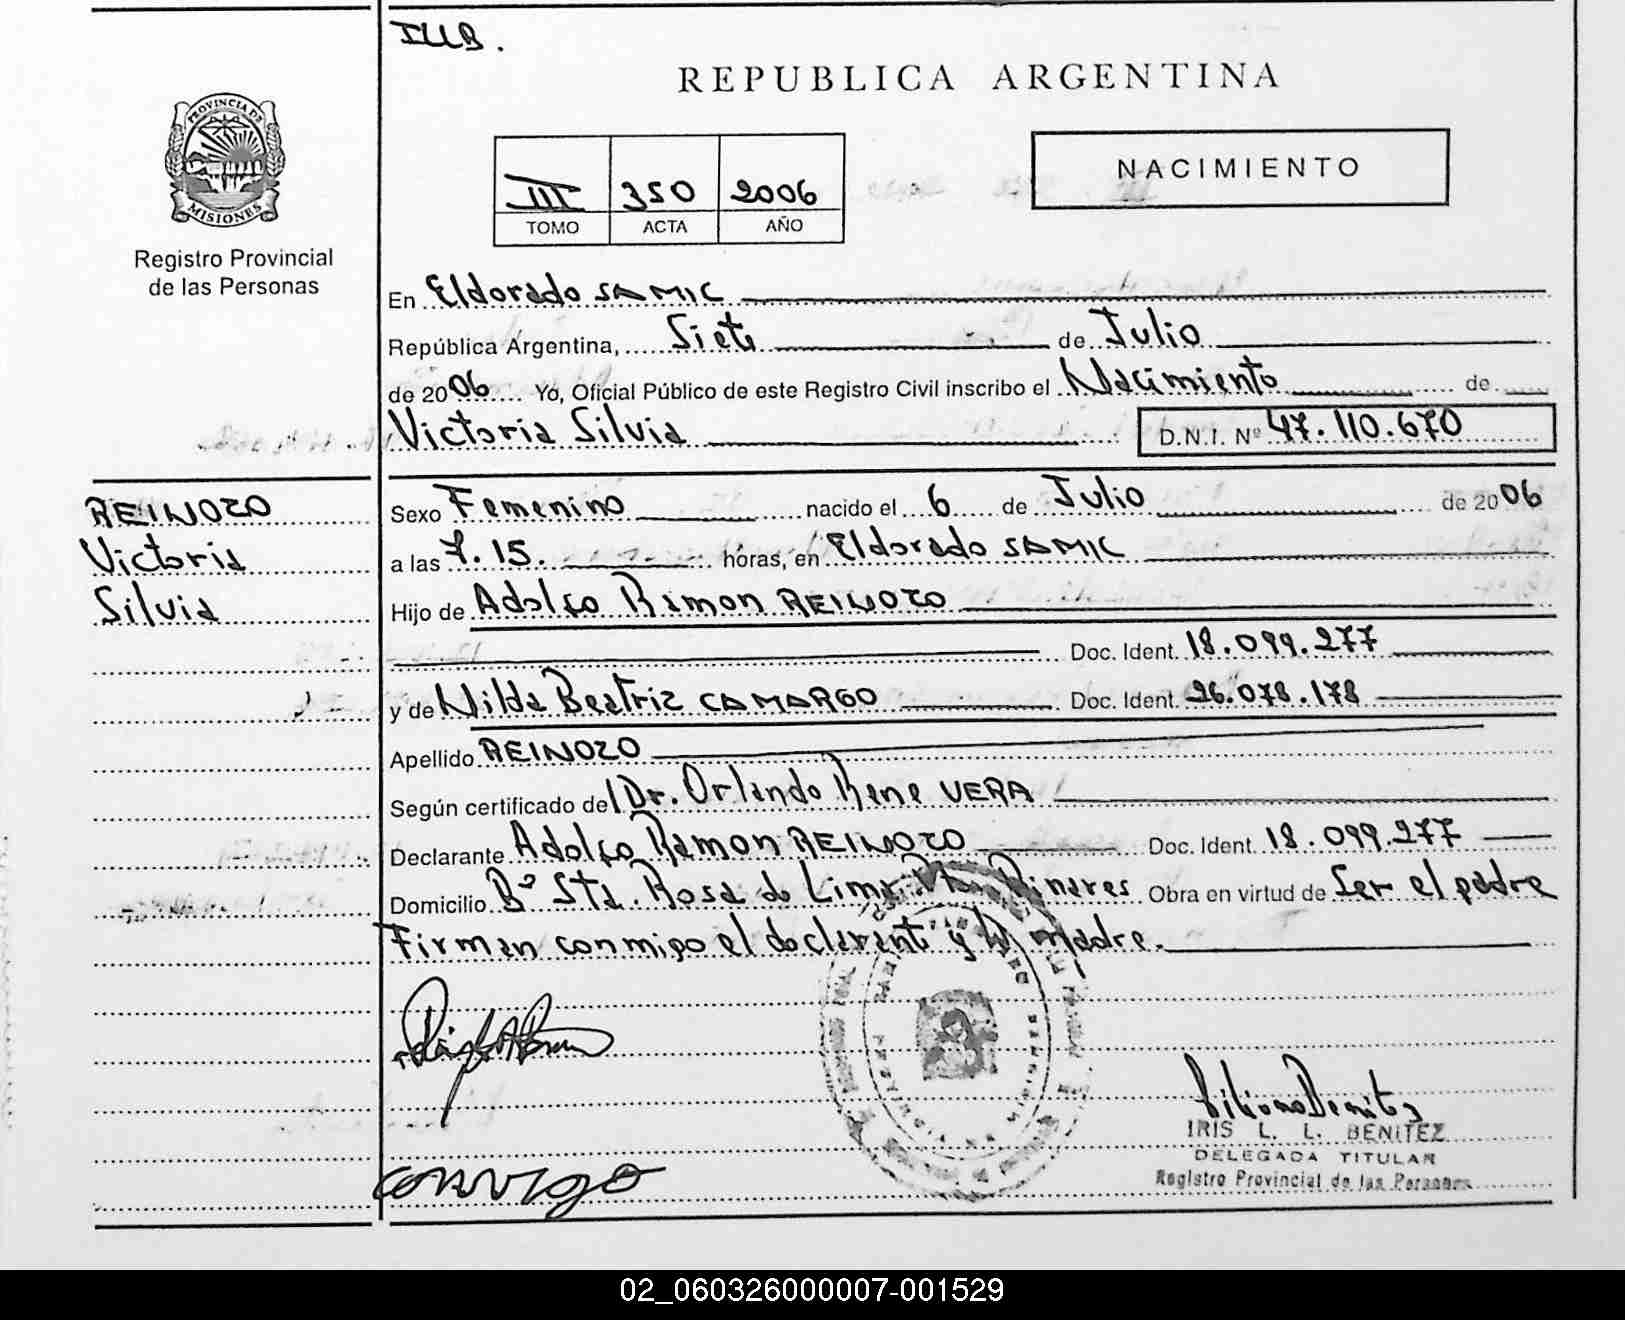 IUB.
REPUBLICA ARGENTINA
PROVINCIA DE
MISIONES
Registro Provincial
de las Personas
III 350 2006
TOMO ACTA AÑO
NACIMIENTO
En Eldorado SAMIC
República Argentina, Siete de Julio
de 2006 Yo, Oficial Público de este Registro Civil inscribo el Nacimiento de
Victoria Silvia D.N.I. Nº 47.110.670
REINOZO
Victoria
Silvia
Sexo Femenino nacido el 6 de Julio de 2006
a las 7.15. horas, en Eldorado SAMIC
Hijo de Adolfo Ramon REINOZO
Doc. Ident. 18.099.277
y de Nilda Beatriz CAMARGO Doc. Ident. 26.078.178
Apellido REINOZO
Según certificado del Dr. Orlando Rene VERA
Declarante Adolfo Ramon REINOZO Doc. Ident. 18.099.277
Domicilio Bº Sta. Rosa de Lima Pinares Obra en virtud de Ser el padre
Firman conmigo el declarante y la madre.
IRIS L. L. BENITEZ
DELEGADA TITULAR
Registro Provincial de las Personas
02_060326000007-001529